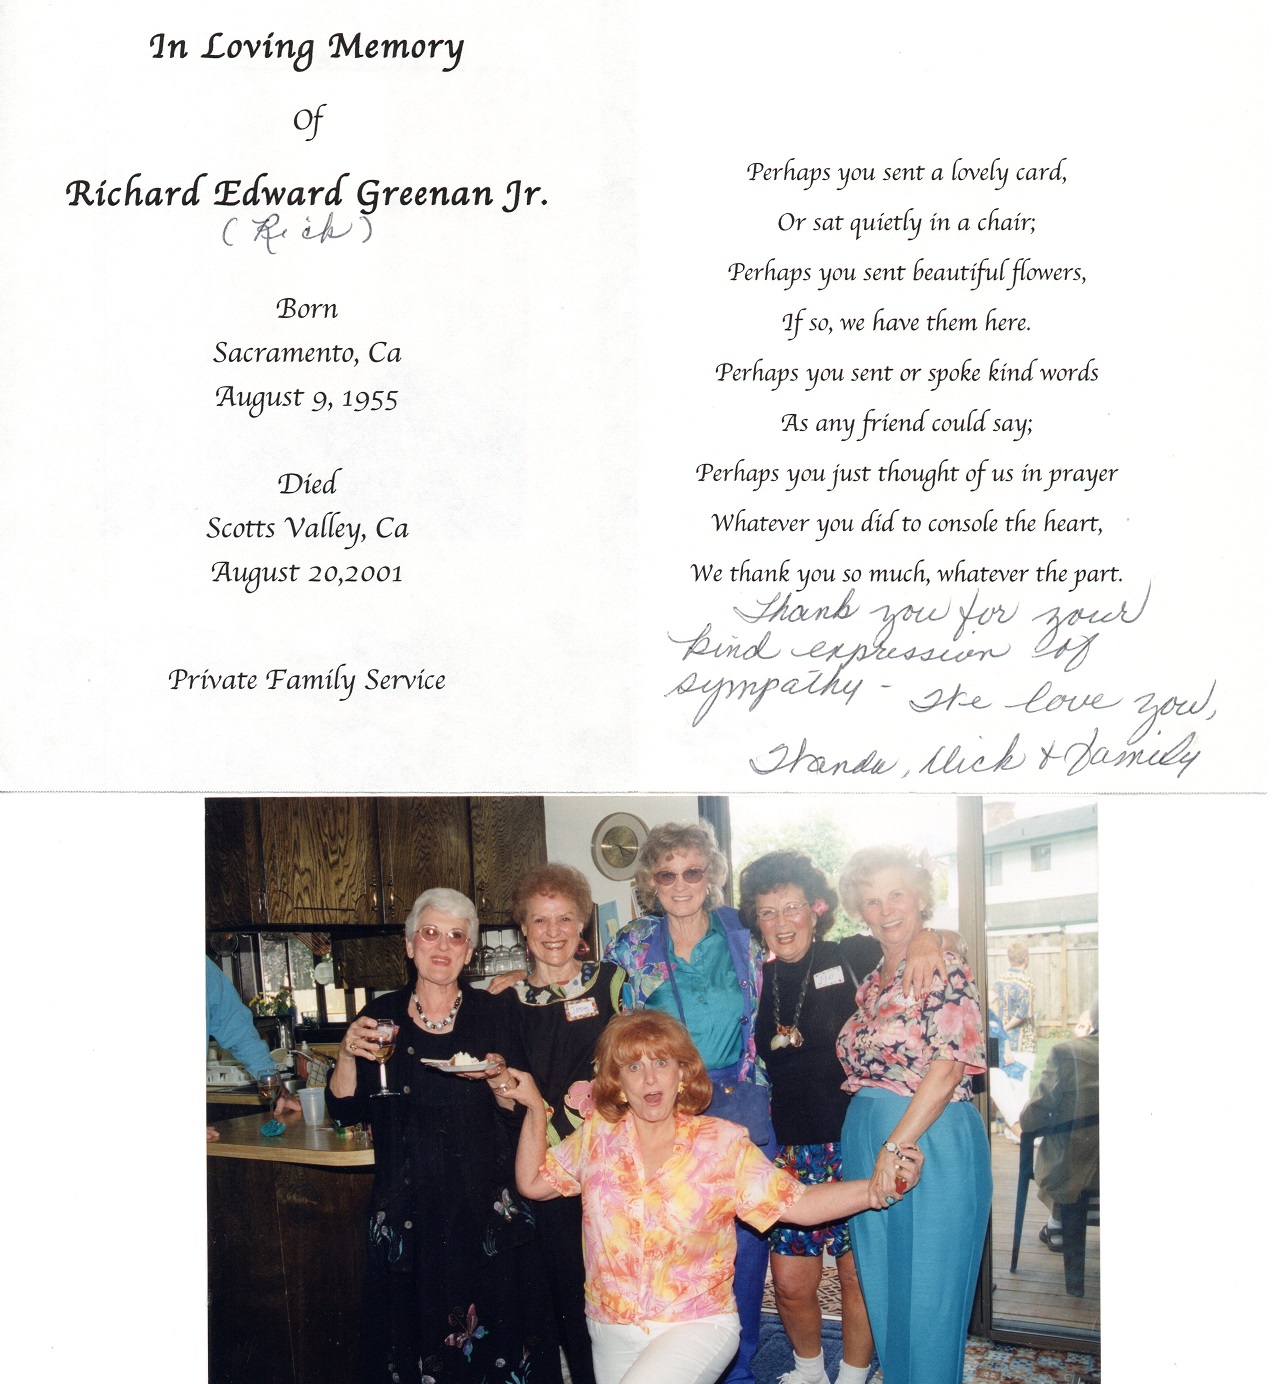 In Loving Memory
Of
Richard Edward Greenan Jr.
(Rick)
Born
Sacramento, Ca
August 9, 1955
Died
Scotts Valley, Ca
August 20,2001
Private Family Service
Perhaps you sent a lovely card,
Or sat quietly in a chair;
Perhaps you sent beautiful flowers,
If so, we have them here.
Perhaps you sent or spoke kind words
As any friend could say;
Perhaps you just thought of us in prayer
Whatever you did to console the heart,
We thank you so much, whatever the part.
Thank you for your
kind expression of
sympathy - We love you,
Wanda, Mick & Family